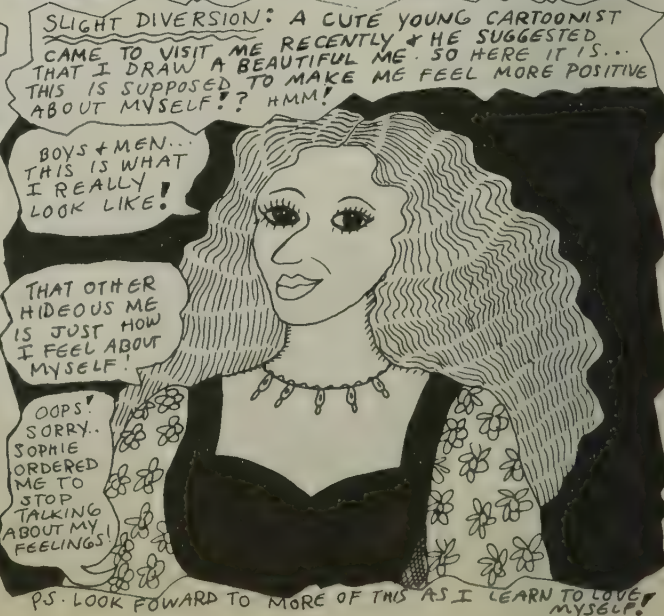 SLIGHT DIVERSION: A CUTE YOUNG CARTOONIST
CAME TO VISIT ME RECENTLY & HE SUGGESTED
THAT I DRAW A BEAUTIFUL ME. SO HERE IT IS...
THIS IS SUPPOSED TO MAKE ME FEEL MORE POSITIVE
ABOUT MYSELF!? HMM!
BOYS & MEN...
THIS IS WHAT
I REALLY
LOOK LIKE!
THAT OTHER
HIDEOUS ME
IS JUST HOW
I FEEL ABOUT
MYSELF!
OOPS!
SORRY..
SOPHIE
ORDERED
ME TO
STOP
TALKING
ABOUT MY
FEELINGS!
PS. LOOK FOWARD TO MORE OF THIS AS I LEARN TO LOVE
MYSELF!